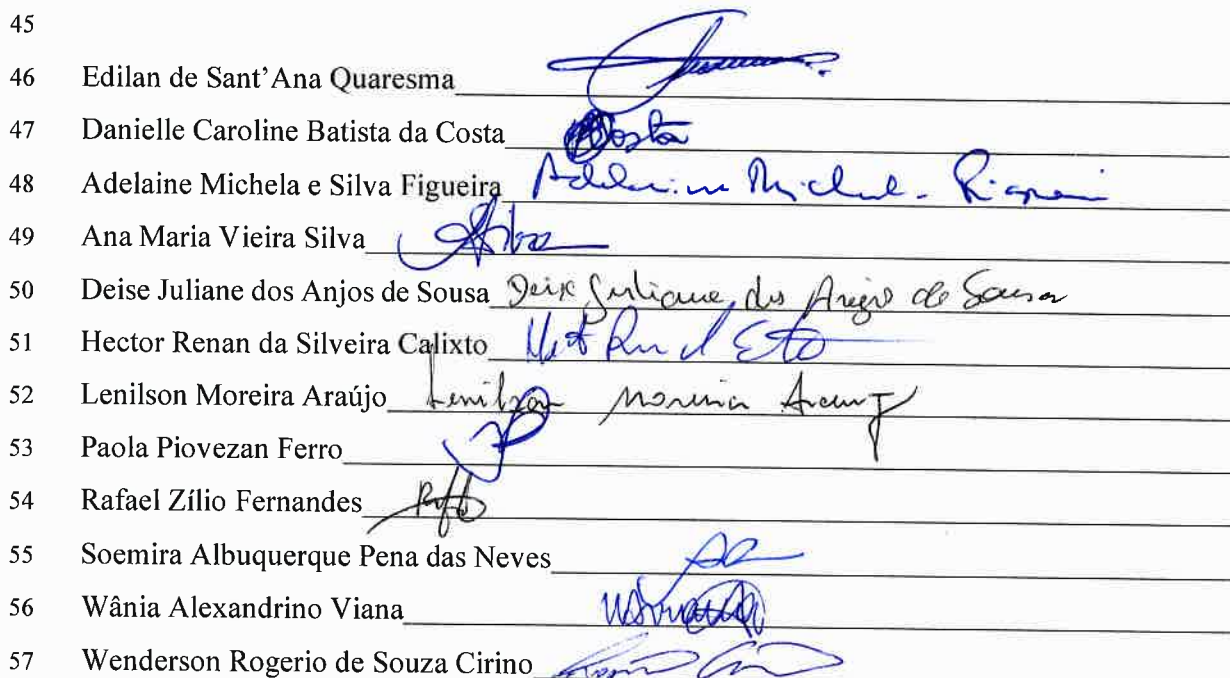 45
46 Edilan de Sant'Ana Quaresma
47 Danielle Caroline Batista da Costa Costa
48 Adelaine Michela e Silva Figueira
49 Ana Maria Vieira Silva Silva
50 Deise Juliane dos Anjos de Sousa Deise Juliane dos Anjos de Sousa
51 Hector Renan da Silveira Calixto
52 Lenilson Moreira Araújo Lenilson Moreira Araujo
53 Paola Piovezan Ferro
54 Rafael Zílio Fernandes
55 Soemira Albuquerque Pena das Neves
56 Wânia Alexandrino Viana
57 Wenderson Rogerio de Souza Cirino